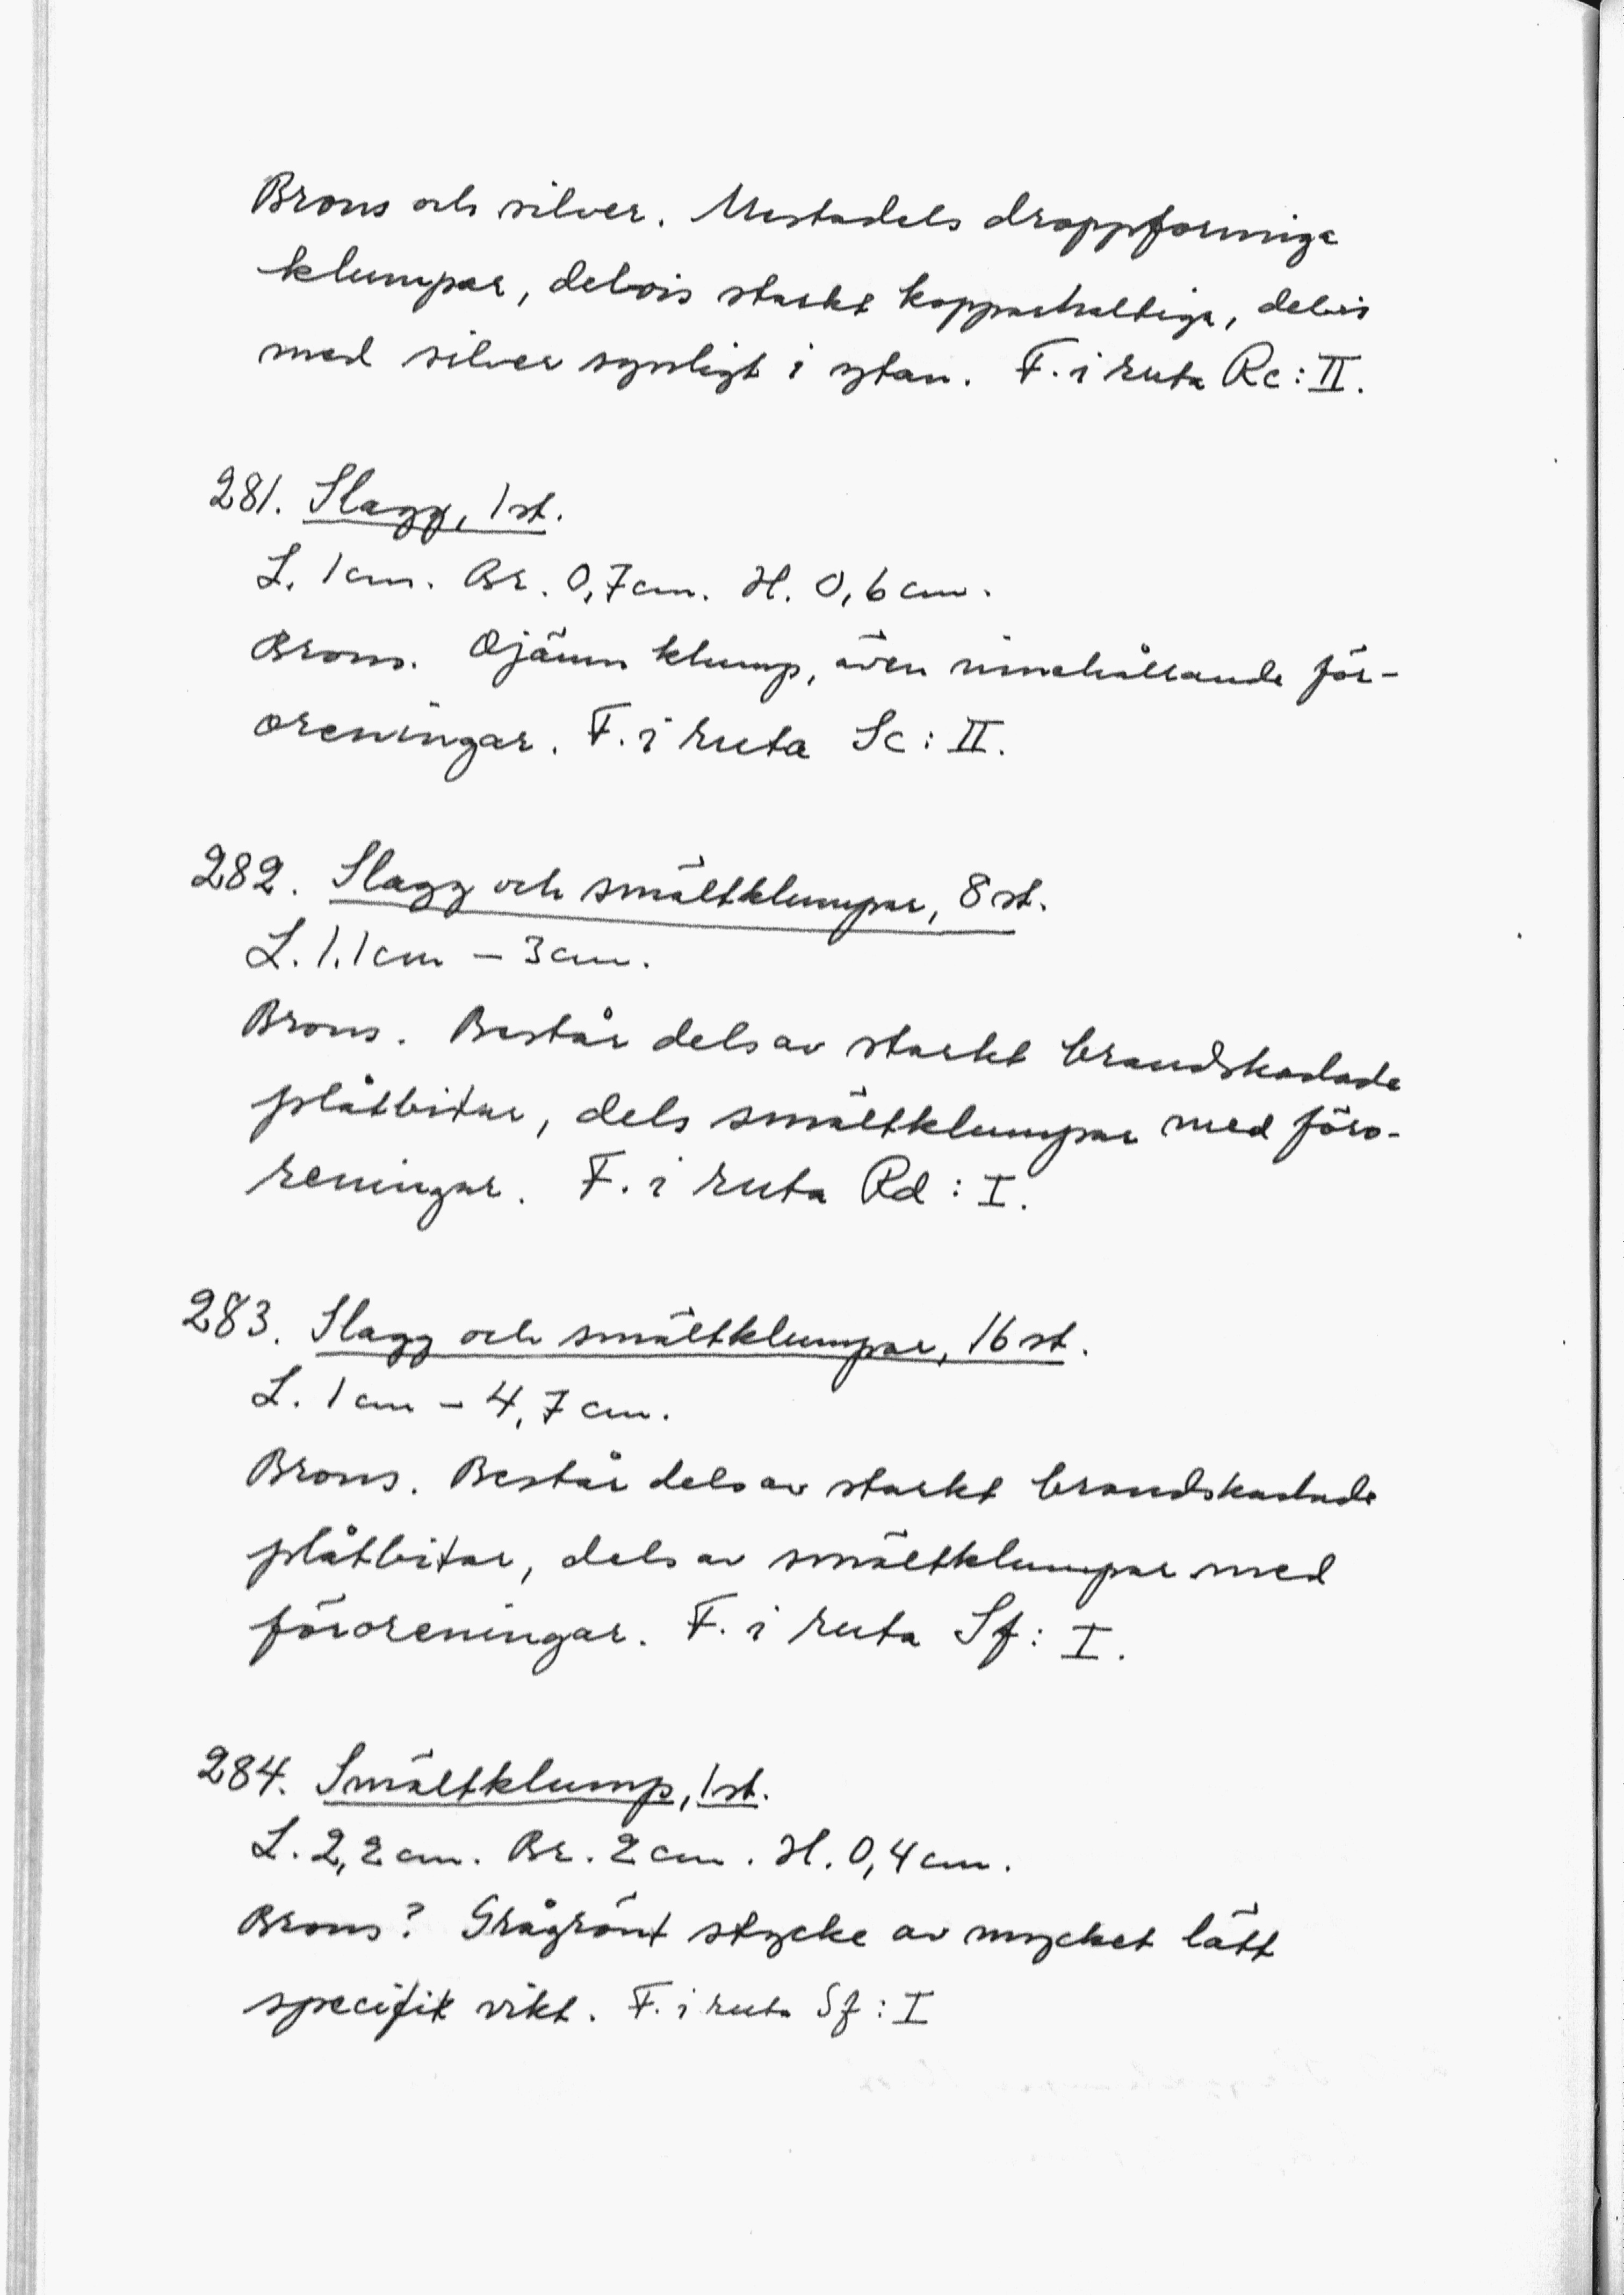 Brons och silver. Mestadels droppformiga
klumpar, delvis starkt kopparhaltiga, delvis
med silver synligt i ytan. F. i ruta Rc: II.
281. Slagg, 1 st.
L. 1 cm. Br. 0,7 cm. H. 0,6 cm.
Brons. Ojämn klump, även innehållande för-
oreningar. F. i ruta Sc: II.
282. Slagg och smältklumpar, 8 st.
L. 1,1 cm – 3 cm.
Brons. Består dels av starkt brandskadade
plåtbitar, dels smältklumpar med föro-
reningar. F. i ruta Rd: I.
283. Slagg och smältklumpar, 16 st.
L. 1 cm – 4,7 cm.
Brons. Består dels av starkt brandskadade
plåtbitar, dels av smältklumpar med
föroreningar. F. i ruta Sf: I.
284. Smältklump, 1 st.
L. 2,2 cm. Br. 2 cm. H. 0,4 cm.
Brons? Grågrönt stycke av mycket lätt
specifik vikt. F. i ruta Sf: I